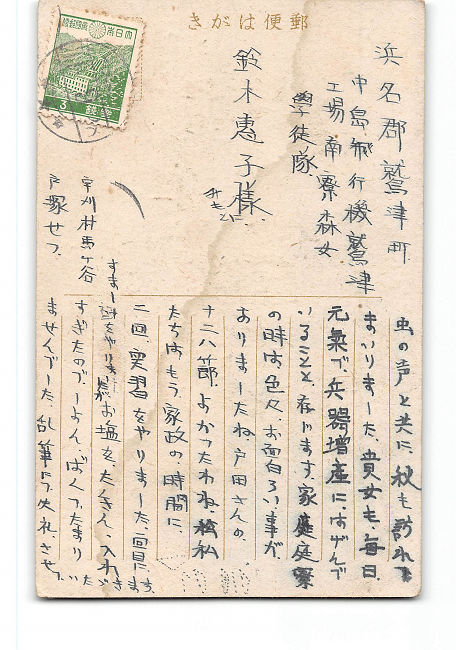 きがは便郵
大日本帝國郵便
3 錢
浜名郡鷲津町
中島飛行機鷲津
工場南寮森女
學徒隊
鈴木惠子様
みもとに
宇刈村馬ヶ谷
戸塚せつ
虫の声と共に、秋も訪れて
まいりました、貴女も、毎日
元氣で、兵器増産に、はげんで
いることと、存じます、家庭寮
の時は色々、お面白ろい事が、
ありましたね、戸田さんの、
十二八節、よかったわね、私
たちは、もう、家政の、時間に
二回、実習をやりました、一回目に
すまし汁をやりましたがお塩を、たくさん、入れ
すぎたので、しよんばくつてたまり
ませんでした、乱筆にて失礼、させて